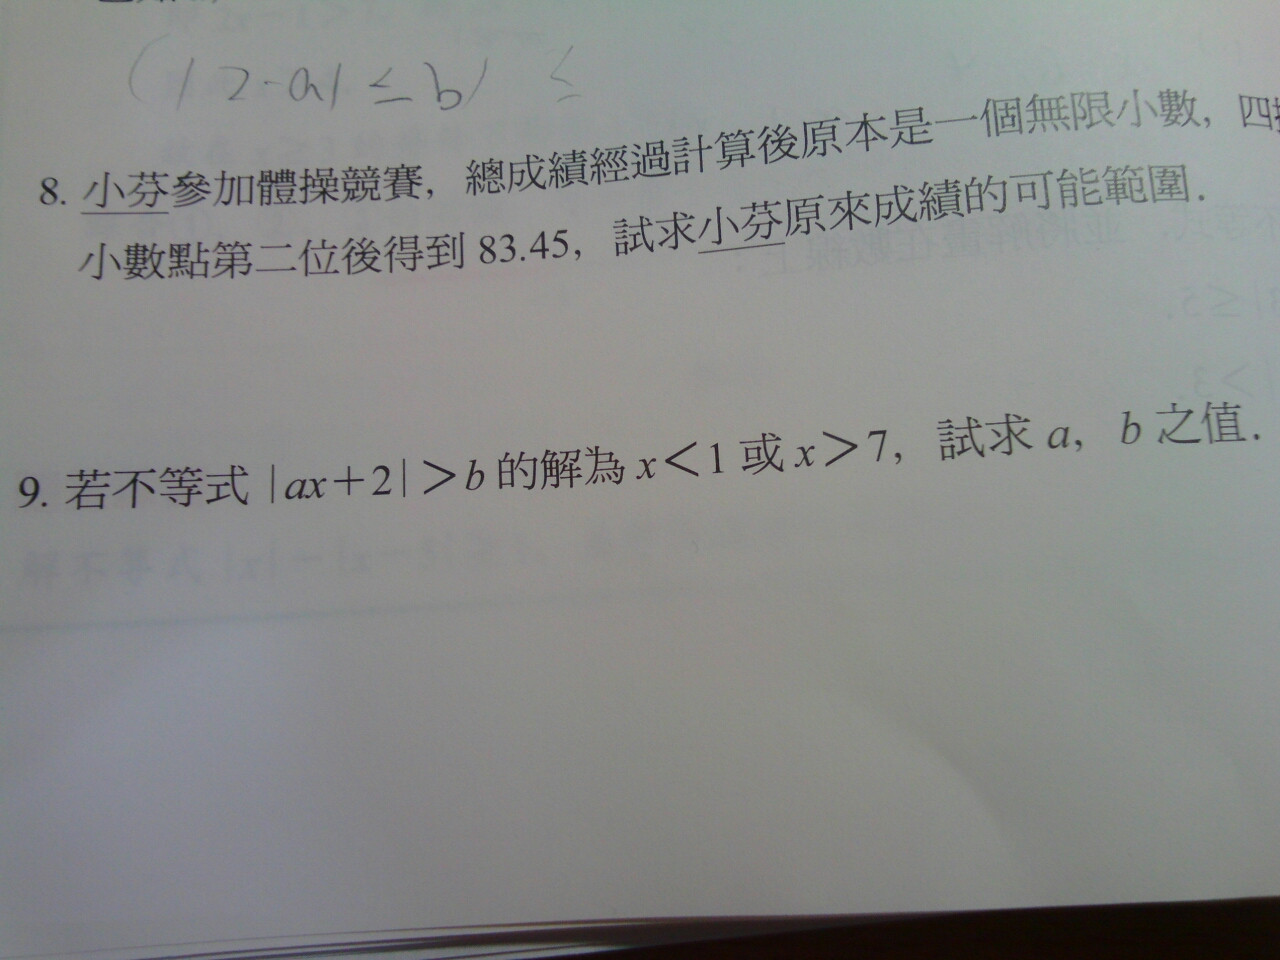 (|2·a|≤b) ≤
8. 小芬參加體操競賽，總成績經過計算後原本是一個無限小數，四
小數點第二位後得到 83.45，試求小芬原來成績的可能範圍．
9. 若不等式 |ax+2|>b 的解為 x<1 或 x>7，試求 a，b 之值．